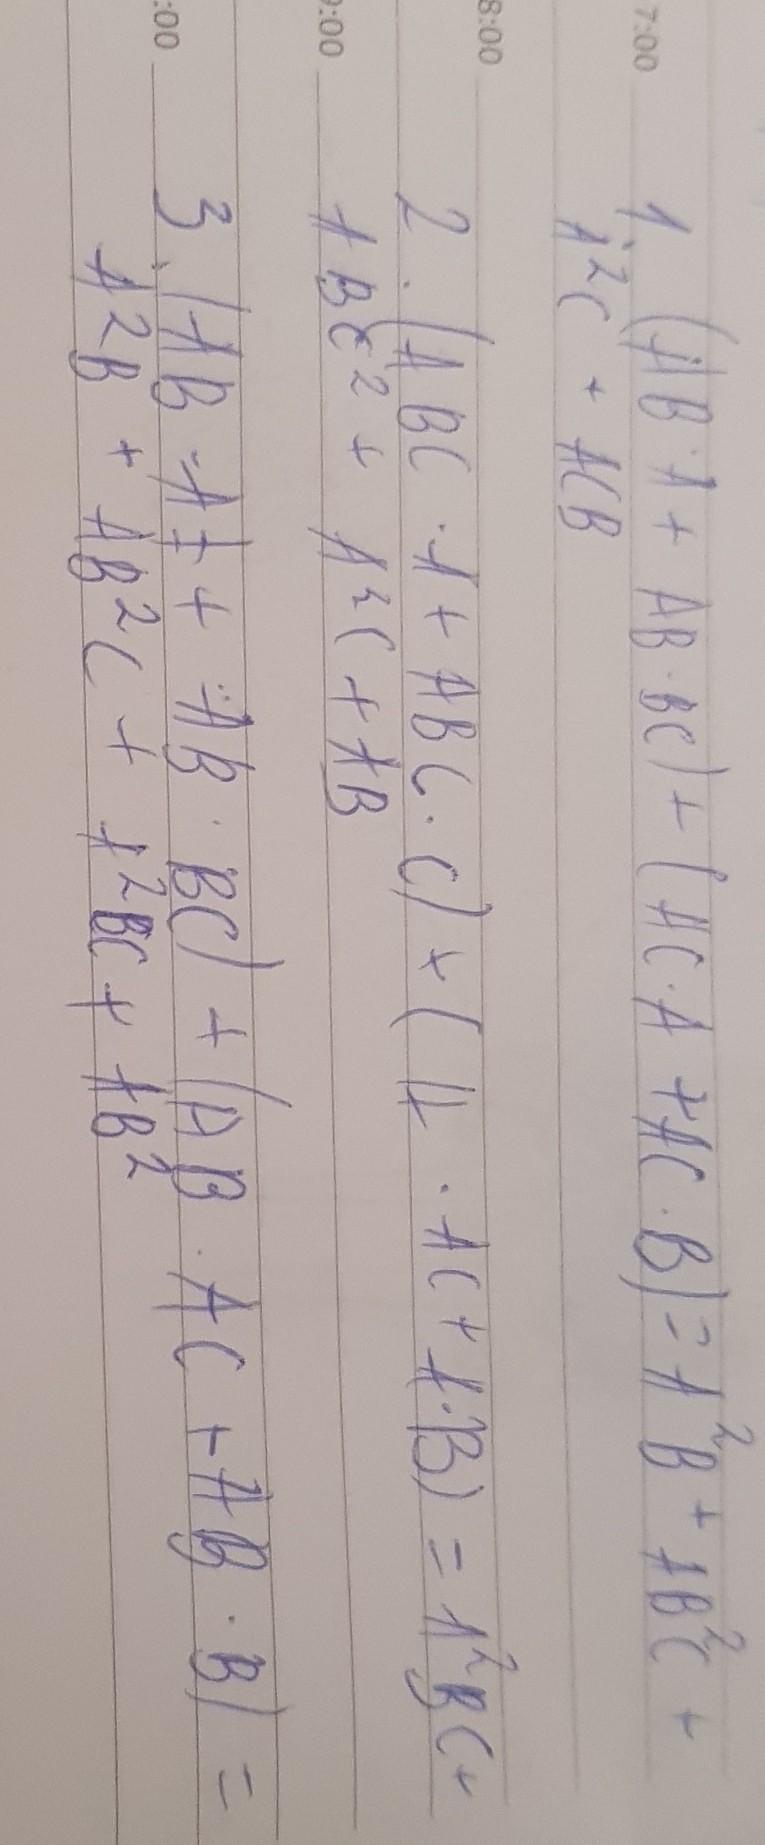 7:00
1. (AB·A + AB·BC) + (AC·A + AC·B) = A²B + AB²C +
A²C + ACB
8:00
2. (ABC·A + ABC·C) + (A·AC + A·B) = A²BC +
9:00
ABC² + A²C + AB
:00
3. (AB·A + AB·BC) + (AB·AC + AB·B) =
A²B + AB²C + A²BC + AB²